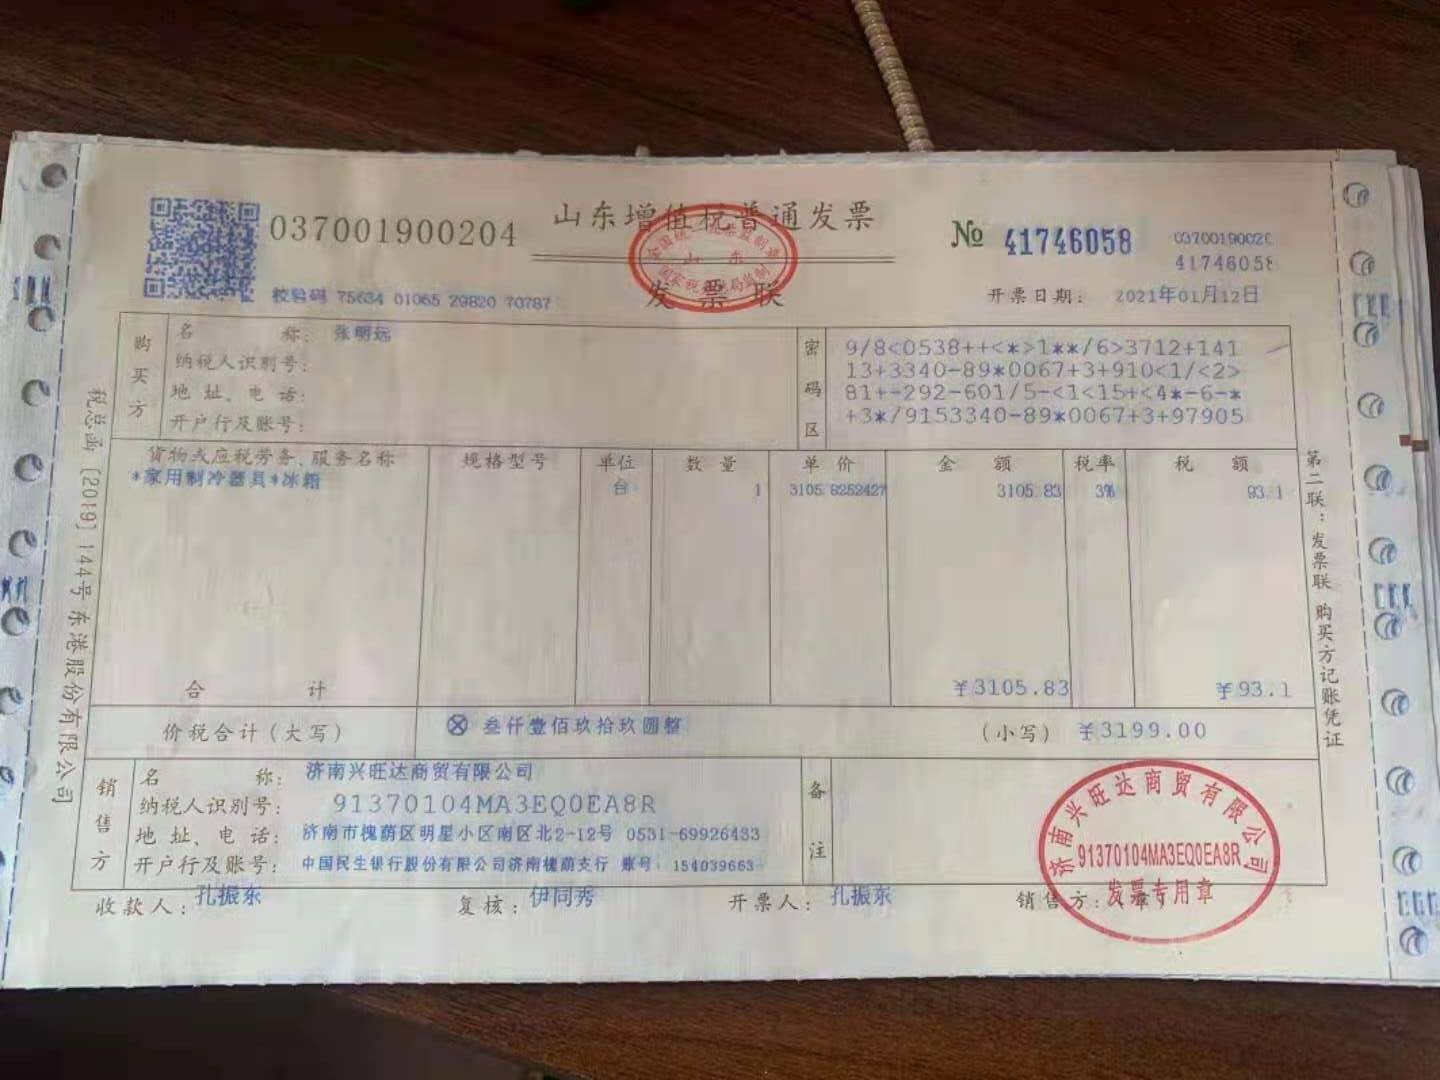 037001900204
山东增值税普通发票
发票联
№ 41746058
03700190020
41746058
校验码 75634 01065 29820 70787
开票日期： 2021年01月12日
购买方
名 称： 张明远
纳税人识别号：
地 址、电 话：
开户行及账号：
密码区
9/8<0538++<*>1**/6>3712+141
13+3340-89*0067+3+910<1/<2>
81+-292-601/5-<1<15+<4*-6-*
+3*/9153340-89*0067+3+97905
货物或应税劳务、服务名称 规格型号 单位 数 量 单 价 金 额 税率 税 额
*家用制冷器具*冰箱 台 1 3105.8252427 3105.83 3% 93.1
合 计 ¥3105.83 ¥93.1
价税合计（大写） ⊗ 叁仟壹佰玖拾玖圆整 （小写） ¥3199.00
销售方
名 称： 济南兴旺达商贸有限公司
纳税人识别号： 91370104MA3EQ0EA8R
地 址、电 话： 济南市槐荫区明星小区南区北2-12号 0531-69926433
开户行及账号： 中国民生银行股份有限公司济南槐荫支行 账号：154039663
备注
收款人： 孔振东 复核： 伊同秀 开票人： 孔振东 销售方：（章）
济南兴旺达商贸有限公司
91370104MA3EQ0EA8R
发票专用章
税总函〔2019〕144号 东港股份有限公司
第二联：发票联 购买方记账凭证